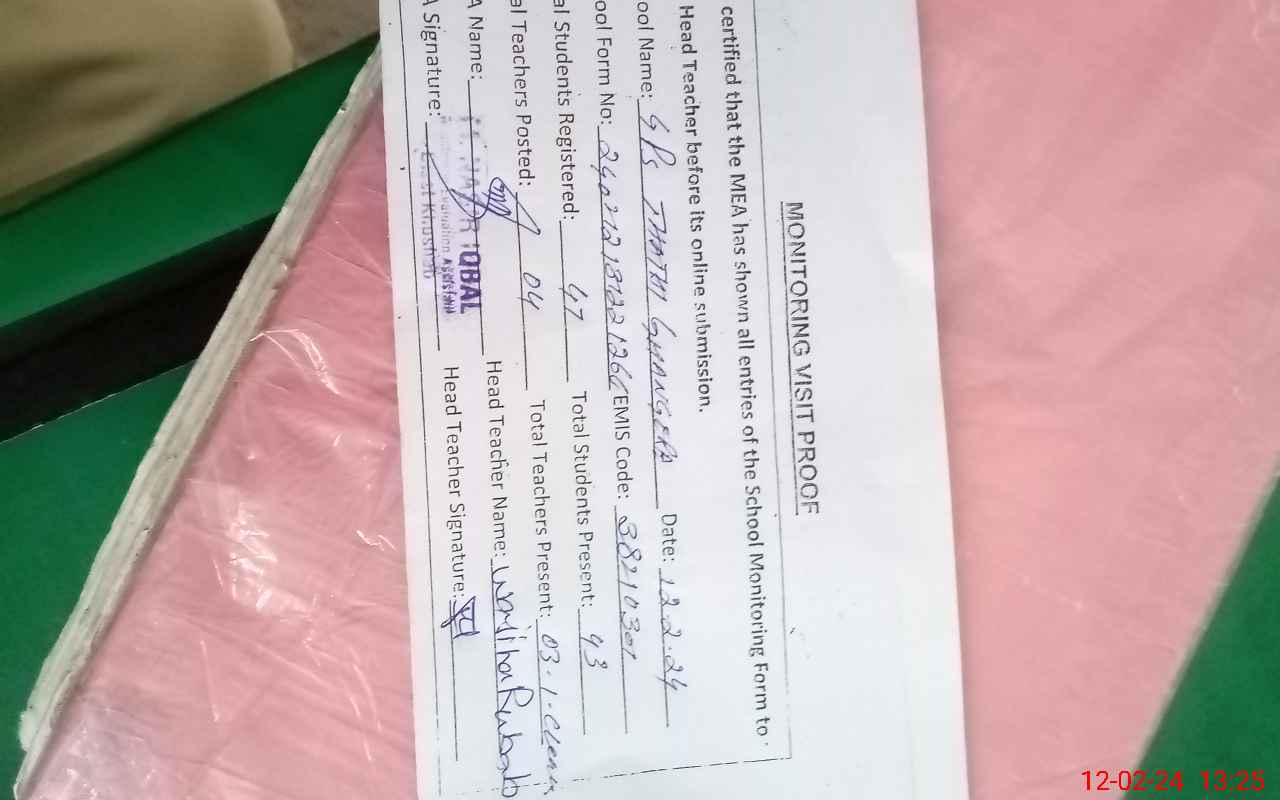 MONITORING VISIT PROOF
certified that the MEA has shown all entries of the School Monitoring Form to
Head Teacher before its online submission.
ool Name: GPS THATHI GHANGERA Date: 12.2.24
ool Form No: EMIS Code: 38210301
al Students Registered: 47 Total Students Present: 43
al Teachers Posted: 04 Total Teachers Present: 03.
A Name: IQBAL Head Teacher Name: Rubab
Evaluation Assistant
A Signature: Khushab Head Teacher Signature:
12-02-24 13:25